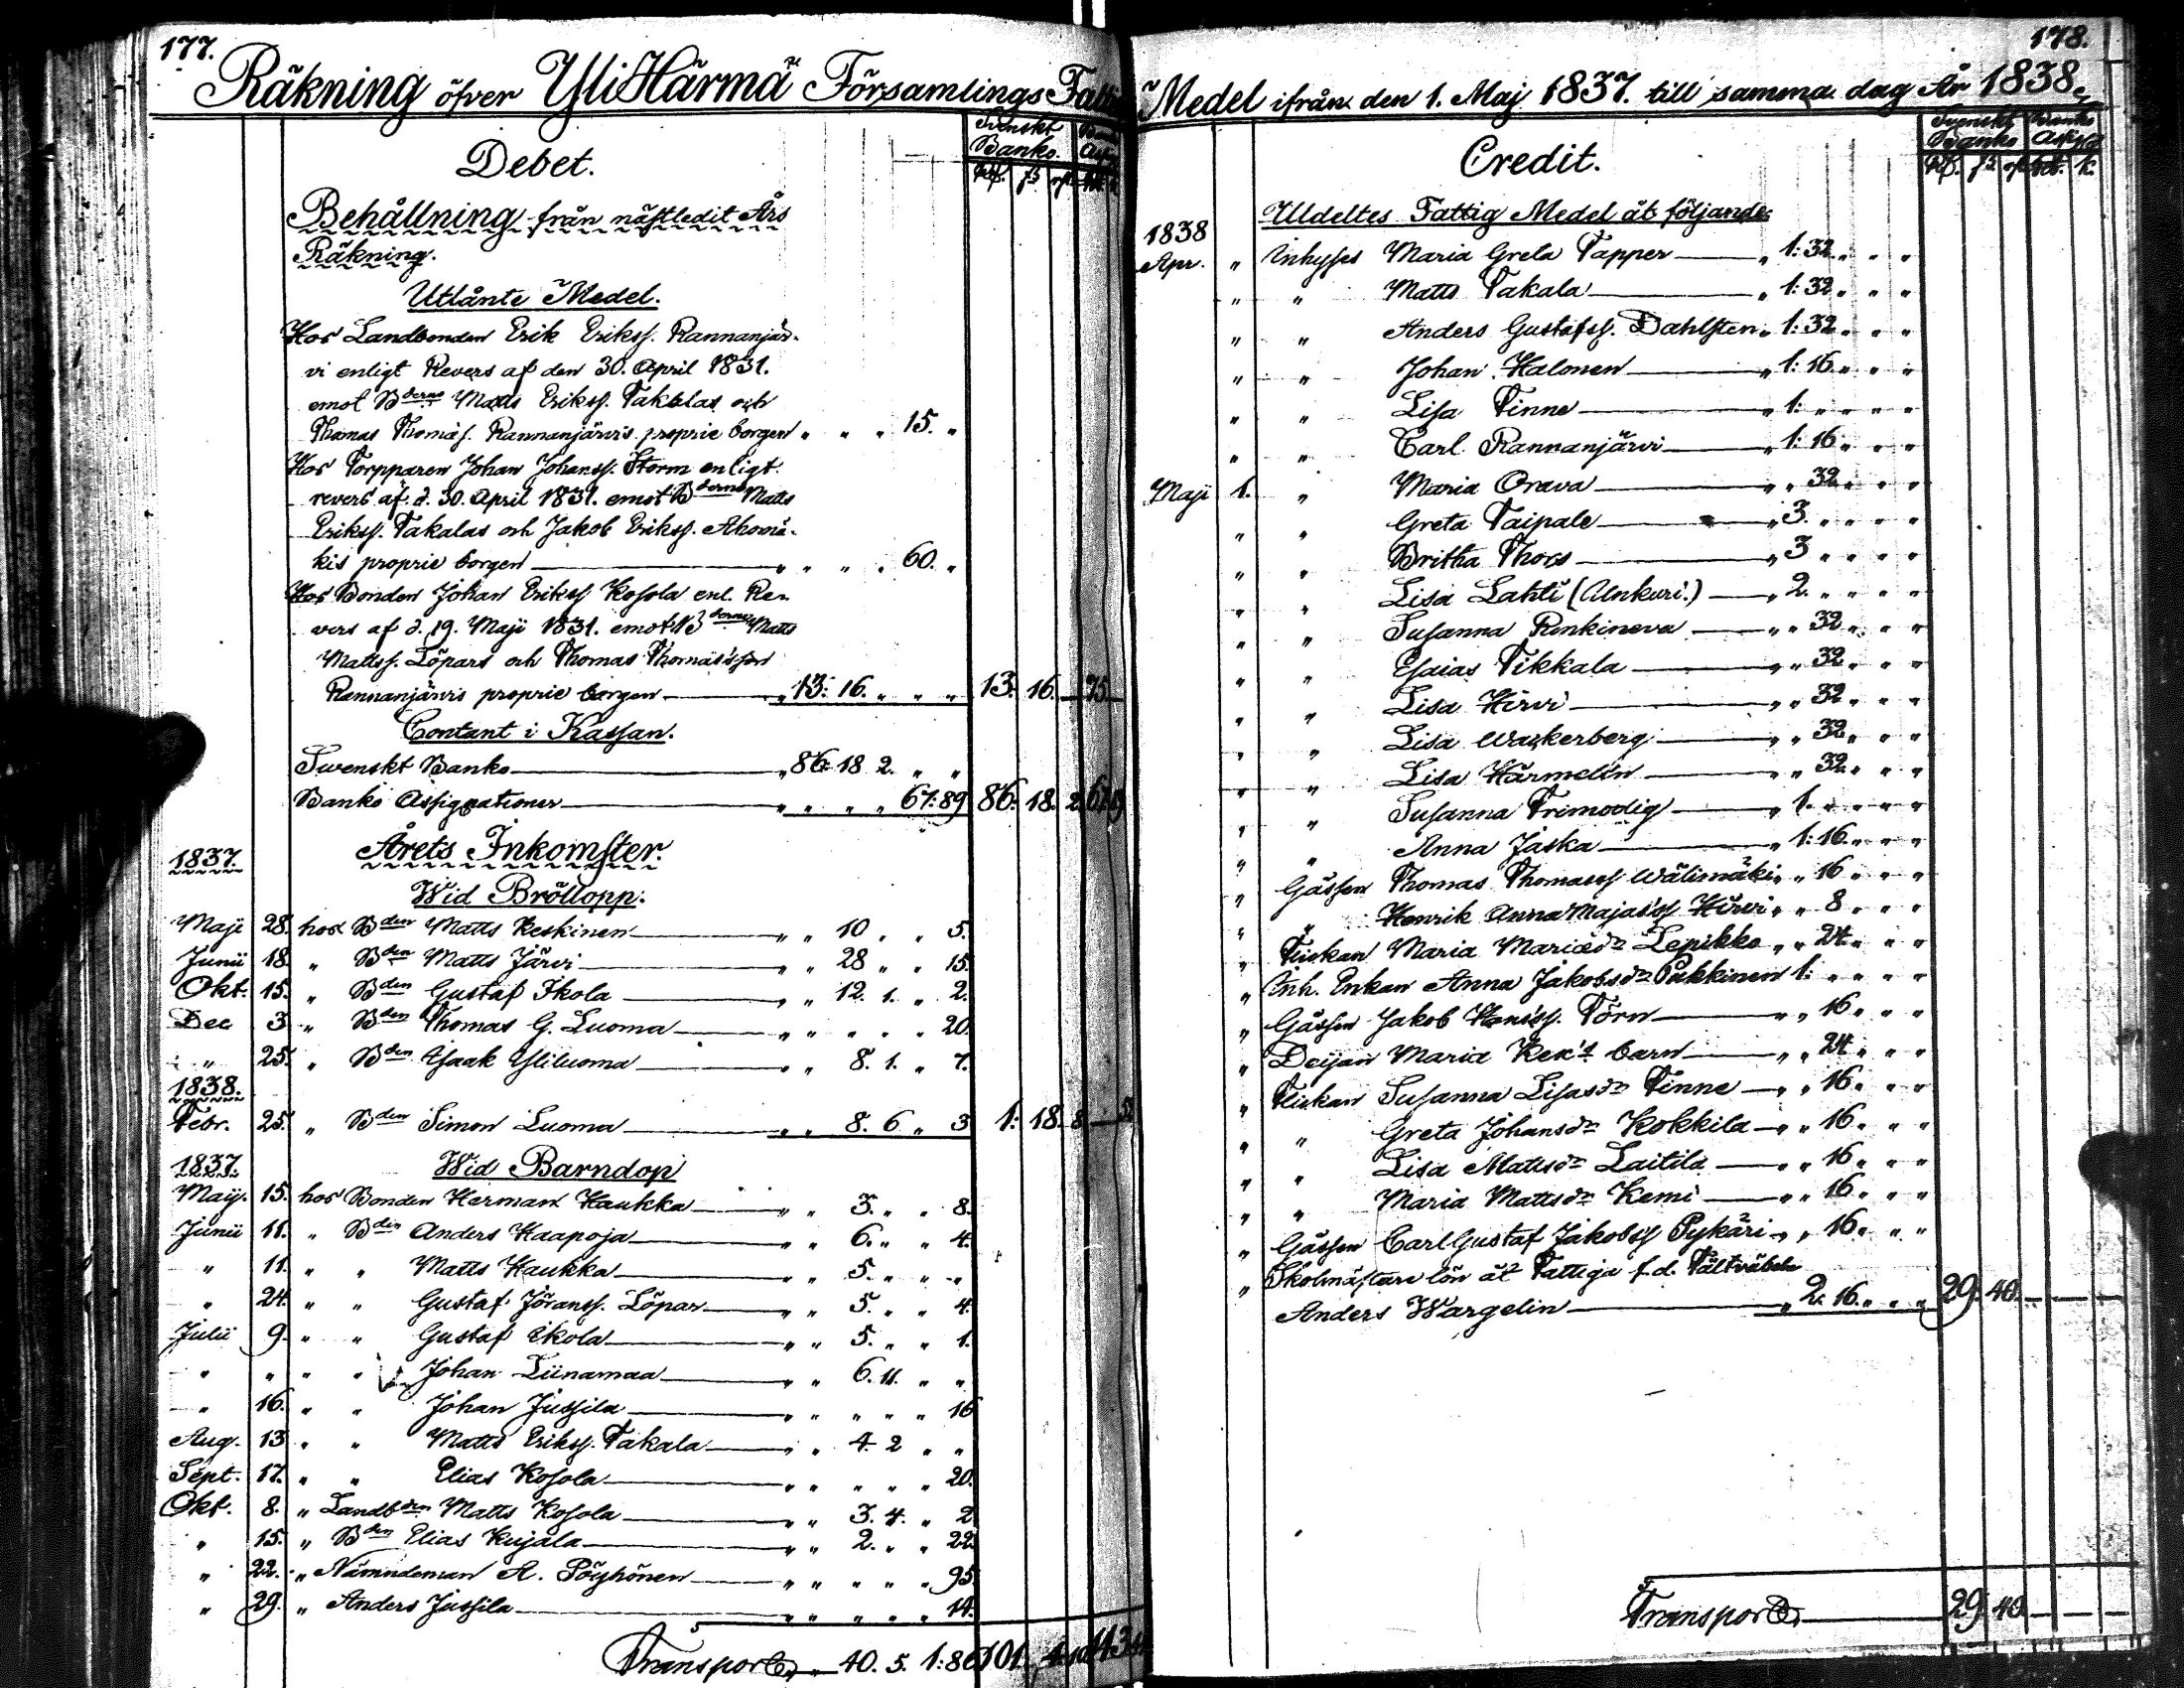 177.
Räkning öfver Yli Härmä Församlings Fatti
Debet.
Svenskt Banko.
Behållning från nästledit Års
Räkning.
Utlånte Medel.
Hos Landbonden Erik Erikss. Rannanjär-
vi enligt Revers af den 30. April 1831.
emot Bderne Matts Erikss. Takalas och
Thomas Thomass. Rannanjärvis proprie borgen " " " 15. "
Hos Torpparen Johan Johanss. Storm enligt
revers af d. 30. April 1831. emot Bderne Matts
Erikss. Takalas och Jakob Erikss. Ahomä-
kis proprie borgen " " " " 60. "
Hos Bonden Johan Erikss Kosola enl. Re-
vers af d. 19. Maji 1831. emot Bderne Matts
Mattss. Löpars och Thomas Thomasson
Rannanjärvis proprie borgen " 13: 16. " " " 13. 16. — 75. —
Contant i Kassan.
Swenskt Banko " 86: 18 2. " "
Banko Assignationer " " " " 67: 89 86. 18. 2.
1837. Årets Inkomster.
Wid Bröllopp.
Maji 28. hos Bden Matts Keskinen " " 10 " " 5.
Junii 18. " Bden Matts Järvi " " 28 " " 15.
Okt. 15. " Bden Gustaf Ikola " " 12. 1. " 2.
Dec 3 " Bden Thomas G. Luoma " " " " " 20.
" 25. " Bden Isaak Yliluoma " " 8. 1. " 7.
1838.
Febr. 25. " Bden Simon Luoma " " 8. 6 " 3 1: 18. 8 — 52
1837. Wid Barndop
Maji. 15. hos Bonden Herman Haukka " " 3. " " 8.
Junii 11. " Bden Anders Haapoja " " 6. " " 4.
" 11. " " Matts Haukka " " 5. " " "
" 24. " " Gustaf Jöranss. Löpar " " 5. " " 4.
Julii 9. " " Gustaf Ikola " " 5. " " 1.
" " " " Johan Liinamaa " " 6. 11. " "
" 16. " " Johan Jussila " " " " " 16
Aug. 13 " " Matts Erikss. Takala " " 4. 2 " "
Sept. 17. " " Elias Kosola " " " " " 20.
Okt. 8. " Landbden Matts Kosola " " 3. 4. " 2
" 15. " Bden Elias Kujala " " 2. " " 22.
" 22. " Nämndeman A. Pöyhönen " " " " " 95.
" 29. " Anders Jussila " " " " " 14.
Transport " 40. 5. 1: 86 101. 4. 10 143.
178.
Medel ifrån den 1. Maj 1837. till samma dag År 1838.
Credit.
Svenskt Banko Banko Assign
Utdeltes Fattig Medel åt följande
1838
Apr. " Inhyses Maria Greta Tapper " 1: 32. " " "
" " Matts Takala " 1: 32 " " "
" " Anders Gustafss. Dahlsten " 1: 32 " " "
" " Johan Halonen " 1: 16 " " "
" " Lisa Finne " 1: " " " "
" " Carl Rannanjärvi " 1: 16 " " "
Maji 1. " Maria Orava " " 32 " " "
" " Greta Taipale " 3. " " " "
" " Britha Thors " 3 " " " "
" " Lisa Lahti (Unkuri.) " 2. " " " "
" " Susanna Renkineva " " 32 " " "
" " Esaias Tikkala " " 32 " " "
" " Lisa Hirvi " " 32 " " "
" " Lisa Wackerberg " " 32 " " "
" " Lisa Härmelin " " 32 " " "
" " Susanna Frimodig " 1. " " " "
" " Anna Jaska " 1: 16 " " "
" Gåssen Thomas Thomass Wälimäki " " 16 " " "
" " Henrik Anna Majass Hirvi " " 8 " " "
" Flickan Maria Mariædr Lepikko " " 24 " " "
" Inh. Enkan Anna Jakobsdr Pukkinen 1: " " " "
" Gåssen Jakob Honiss. Törn " " 16 " " "
" Deijan Maria Kek's barn " " 24 " " "
" Flickan Susanna Lisasdr Finne " " 16 " " "
" " Greta Johansdr Kokkila " " 16 " " "
" " Lisa Mattsdr Laitila " " 16 " " "
" " Maria Mattsdr Kemi " " 16 " " "
" Gåssen Carl Gustaf Jakobss Pykäri " " 16 " " "
" Skolmästare lön åt Fattiga f. d. Fältväbeln
Anders Wargelin " 2. 16. " " " 29. 40. — — —
Transport 29 40 — — —